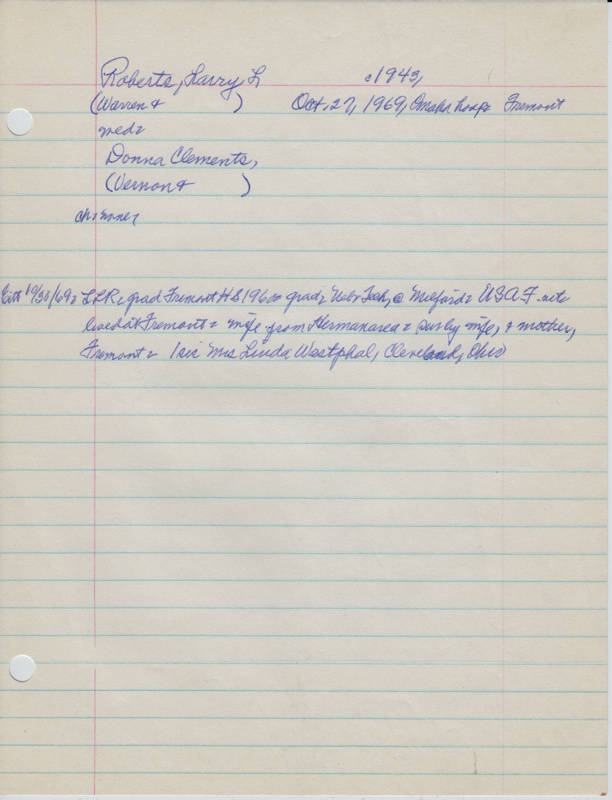 Roberts, Larry L c1943,
(Warren & ) Oct. 27, 1969, Omaha hosp. Fremont
wed:
Donna Clements,
(Vernon & )
ch: none
10/30/69: LLR, grad Fremont HS 1960 grad, Nebr Tech, @ Milford: USAF vet:
lived at Fremont: wife from Herman area: surv by wife, & mother,
Fremont: 1 sis Mrs Linda Westphal, Cleveland, Ohio